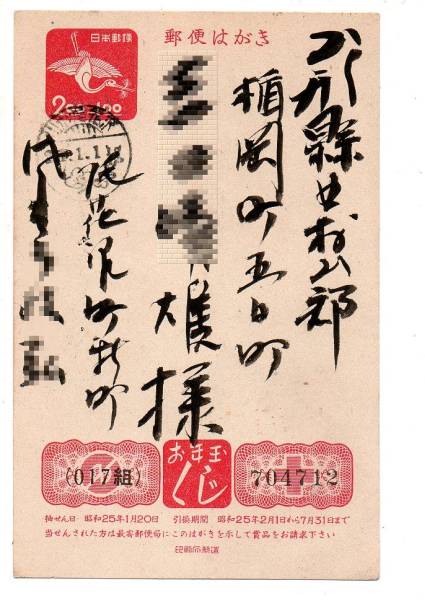 郵便はがき
日本郵便
山形縣北村山郡
楯岡町五日町
雄様
尾花沢町新町
お年玉
くじ
(017組)
704712
抽せん日 昭和25年1月20日 引換期間 昭和25年2月1日から7月31日まで
当せんされた方は最寄郵便局にこのはがきを示して賞品をお請求下さい